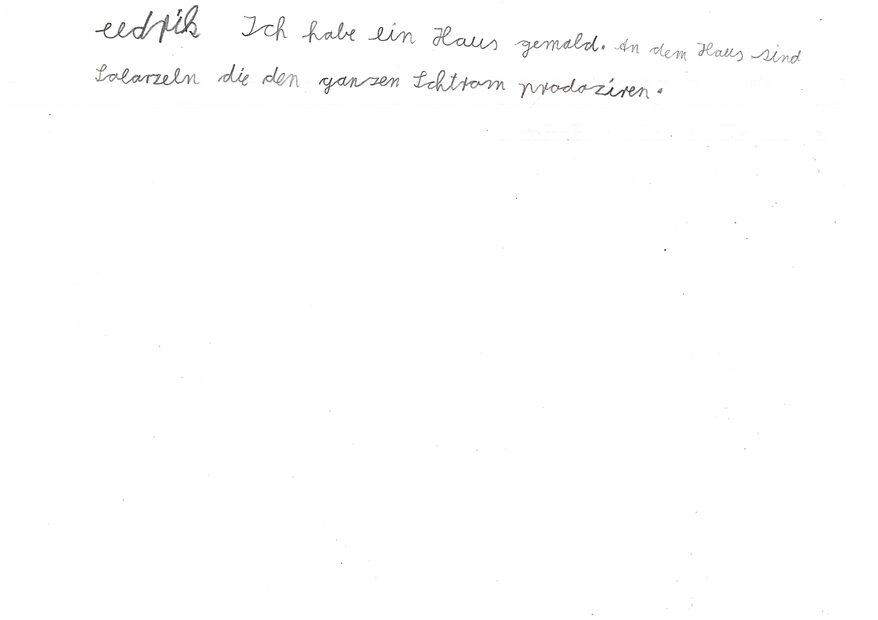 Ich habe ein Haus gemald. An dem Haus sind
Solarzeln die den ganzen Schtrom prodoziren.